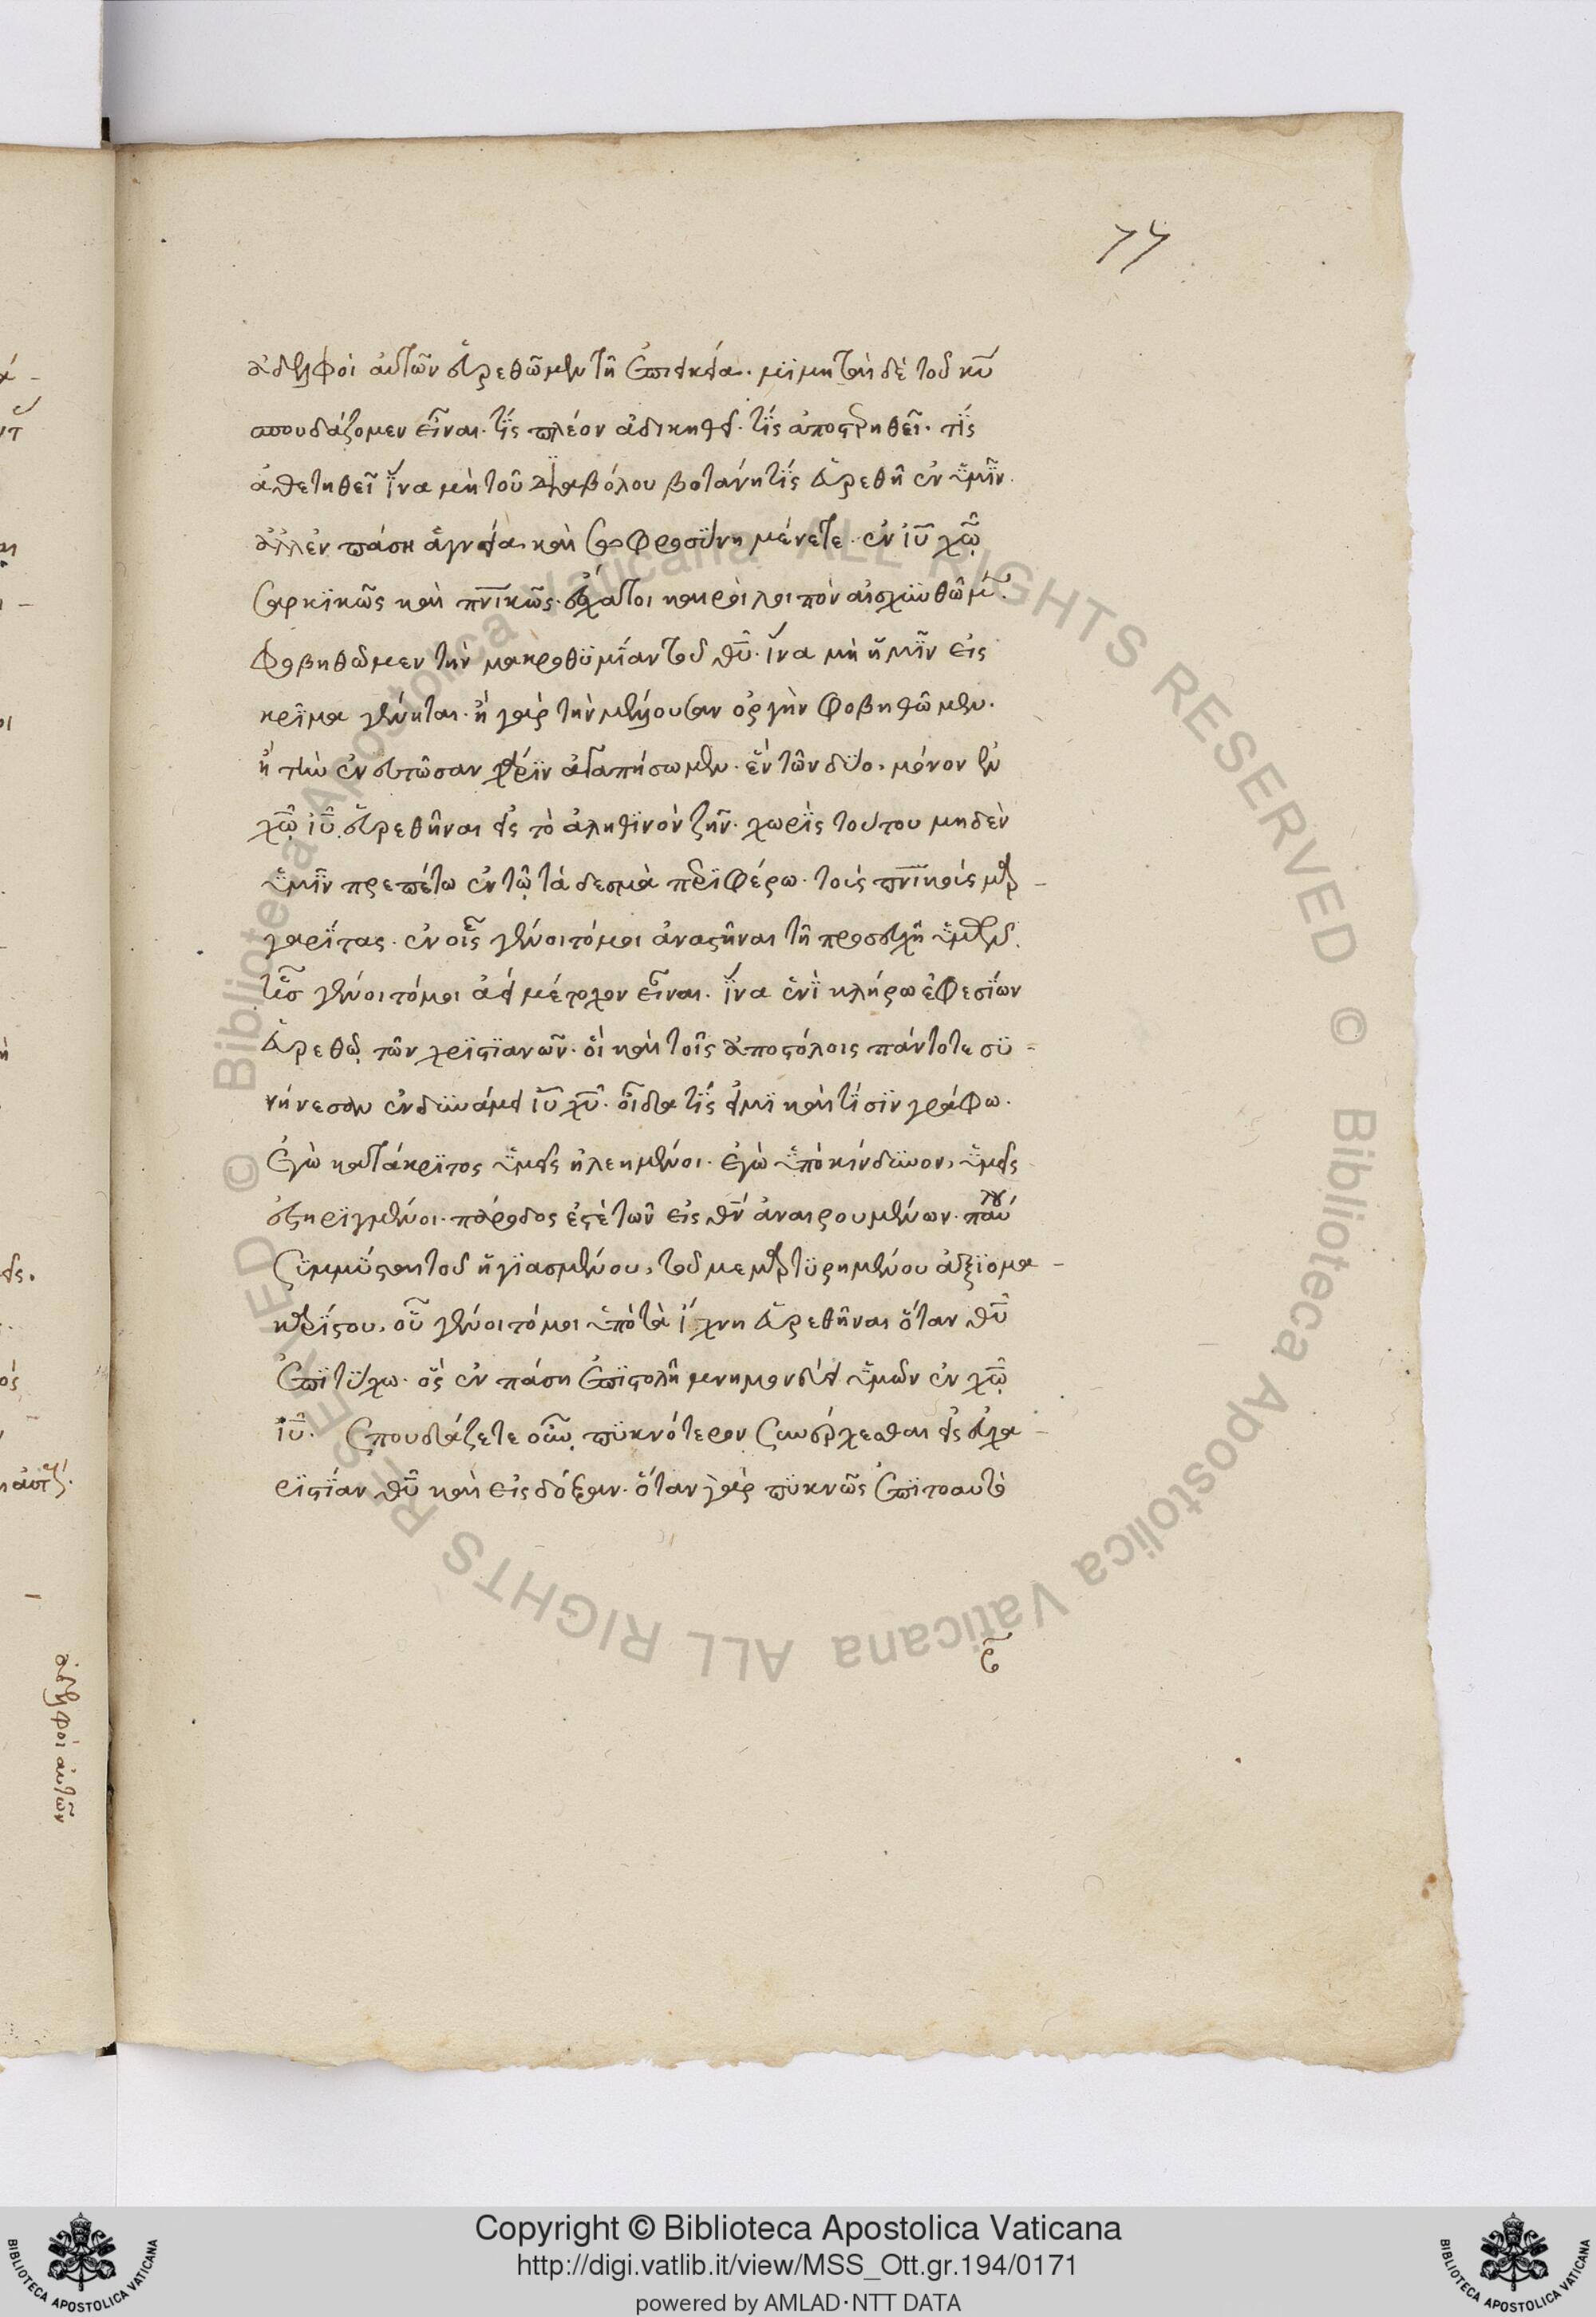 77
ἀδελφοὶ αὐτῶν εὑρεθῶμεν τῆ ἐπιεικεία. μϊμηταὶ δὲ τοῦ κυ̅
σπουδάζομεν εἶναι. τίς πλέον ἀδικηθεῖ. τίς ἀποστρηθεῖ. τίς
ἀθετηθεῖ ἵνα μὴ τοῦ διαβόλου βοτάνη τίς εὑρεθῆ ἐν ὑμῖν.
ἀλλ' ἐν πάση ἁγνεία καὶ σωφροσύνη μένετε ἐν ιυ̅ χω̅
σαρκικῶς καὶ πνικῶς. ἔσχατοι καιροὶ λοιπὸν αἰσχυνθῶμ̅.
φοβηθῶμεν τὴν μακροθυμίαν τοῦ θυ̅. ἵνα μὴ ἡμῖν εἰς
κρῖμα γένηται. ἢ γὰρ τὴν μέλλουσαν ὀργὴν φοβηθῶμεν.
ἢ τὴν ἐνεστῶσαν χάριν ἀγαπήσωμεν. ἓν τῶν δύο. μόνον ἐν
χω̅ ιυ̅ εὑρεθῆναι εἰς τὸ ἀληθινὸν ζῆν. χωρὶς τούτου μηδὲν
ὑμῖν πρεπέτω ἐν τῶ τὰ δεσμὰ περιφέρω. τοὺς πνϊκοὺς μαρ-
γαρίτας. ἐν οἷς γένοιτό μοι ἀναστῆναι τῆ προσευχῆ ὑμῶν.
ἧς γένοιτό μοι ἀεὶ μέτοχον εἶναι. ἵνα ἑνὶ κλήρω ἐφεσίων
εὑρεθῶ τῶν χριστιανῶν. οἳ καὶ τοῖς ἀποστόλοις πάντοτε συ-
νήνεσαν ἐν δυνάμει ιυ̅ χυ̅. οἶδα τίς εἰμι καὶ τίσιν γράφω.
ἐγὼ κατάκριτος ὑμεῖς ἠλεημένοι. ἐγὼ ὑπὸ κίνδυνον, ὑμεῖς
ἐστηριγμένοι. πάροδος ἐστὲ τῶν εἰς θν̅ ἀναιρουμένων. παύλου
συμμύσται τοῦ ἡγιασμένου, τοῦ μεμαρτυρημένου ἀξϊομα-
καρίστου, οὗ γένοιτό μοι ὑπὸ τὰ ἴχνη εὑρεθῆναι ὅταν θυ̅
ἐπιτύχω. ὃς ἐν πάση ἐπιστολῆ μνημονεύει ὑμῶν ἐν χω̅
ιυ̅. Σπουδάζετε οὖν πυκνότερον συνέρχεσθαι εἰς εὐχα-
ριστίαν θυ̅ καὶ εἰς δόξαν. ὅταν γὰρ πυκνῶς ἐπιτοαυτὸ
ἀδελφοὶ αὐτῶν
Copyright © Biblioteca Apostolica Vaticana
http://digi.vatlib.it/view/MSS_Ott.gr.194/0171
powered by AMLAD·NTT DATA